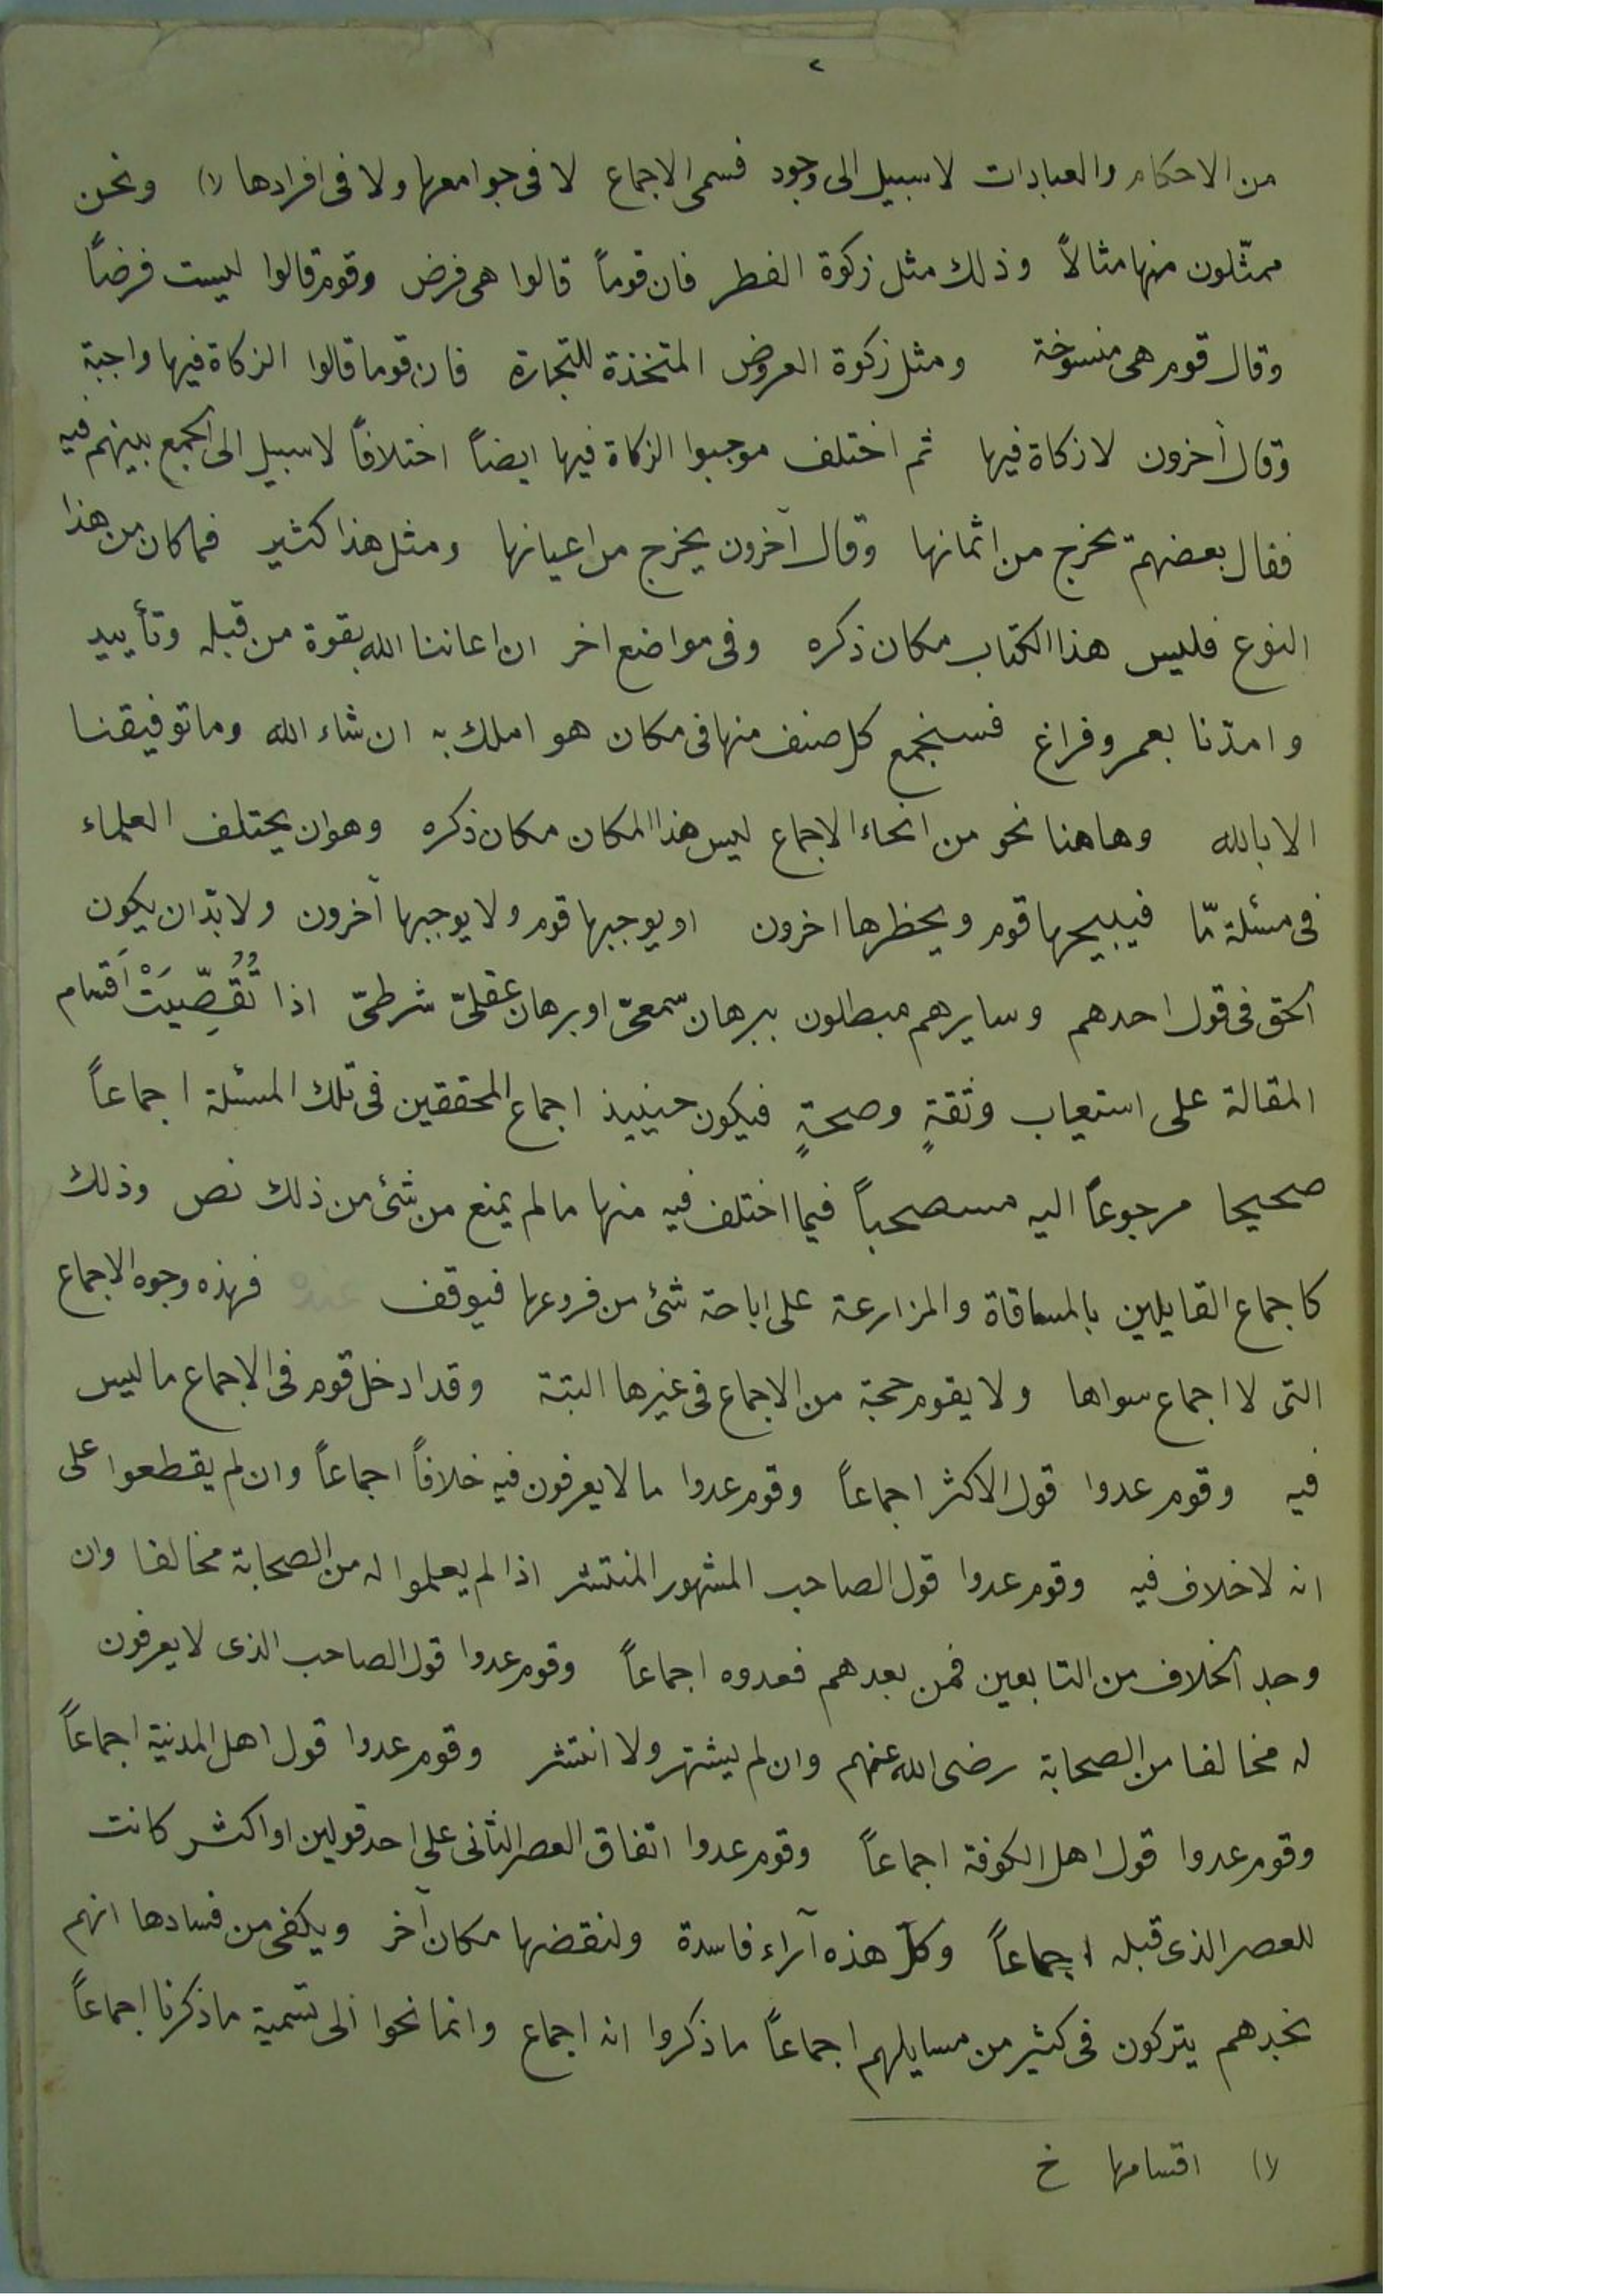 ٢
من الاحكام والعبادات لاسبيل الى وجود قسمى الاجماع لا فى جوامعها ولا فى افرادها (١) ونحن
ممثّلون منها مثالاً وذلك مثل زكوة الفطر فان قوماً قالوا هى فرض وقوم قالوا ليست فرضاً
وقال قوم هى منسوخة ومثل زكوة العروض المتخذة للتجارة فان قوما قالوا الزكاة فيها واجبة
وقال آخرون لا زكاة فيها ثم اختلف موجبوا الزكاة فيها ايضاً اختلافاً لاسبيل الى الجمع بينهم فيه
فقال بعضهم تخرج من اثمانها وقال آخرون يخرج من اعيانها ومثل هذا كثير فما كان من هذا
النوع فليس هذا الكتاب مكان ذكره وفى مواضع اخر ان اعاننا الله بقوة من قبله وتأييد
وامدّنا بعمر وفراغ فسنجمع كل صنف منها فى مكان هو املك به ان شاء الله وما توفيقنا
الا بالله وهاهنا نحو من انحاء الاجماع ليس هذا المكان مكان ذكره وهو ان يختلف العلماء
فى مسئلة مّا فيبيحها قوم ويحظرها اخرون او يوجبها قوم ولا يوجبها آخرون ولا بدّ ان يكون
الحق فى قول احدهم وسايرهم مبطلون ببرهان سّمعىّ او برهان عقلىّ شرطىّ اذا تُقُصِّيَتْ اَقسام
المقالة على استيعاب وثقةٍ وصحةٍ فيكون حينيذ اجماع المحققين فى تلك المسئلة اجماعاً
صحيحا مرجوعاً اليه مسصحباً فيما اختلف فيه منها مالم يمنع من شئ من ذلك نص وذلك
كاجماع القايلين بالمساقاة والمزارعة على اباحة شئ من فروعها فيوقف عنده فهذه وجوه الاجماع
التى لا اجماع سواها ولا يقوم حجة من الاجماع فى غيرها البتة وقد ادخل قوم فى الاجماع ماليس
فيه وقوم عدوا قول الاكثر اجماعاً وقوم عدوا ما لا يعرفون فيه خلافاً اجماعاً وان لم يقطعوا على
انه لا خلاف فيه وقوم عدوا قول الصاحب المشهور المنتشر اذا لم يعلموا له من الصحابة مخالفا وان
وجد الخلاف من التابعين فمن بعدهم فعدوه اجماعاً وقوم عدوا قول الصاحب الذى لا يعرفون
له مخالفا من الصحابة رضى الله عنهم وان لم يشتهر ولا انتشر وقوم عدوا قول اهل المدنية اجماعاً
وقوم عدوا قول اهل الكوفة اجماعاً وقوم عدوا اتفاق العصر الثانى على احد قولين او اكثر كانت
للعصر الذى قبله اجماعاً وكلّ هذه آراء فاسدة ولنقضها مكان آخر ويكفى من فسادها انهم
نجدهم يتركون فى كثير من مسايلهم اجماعاً ما ذكروا انه اجماع وانما نحوا الى تسمية ما ذكرنا اجماعاً
(١) اقسامها خ